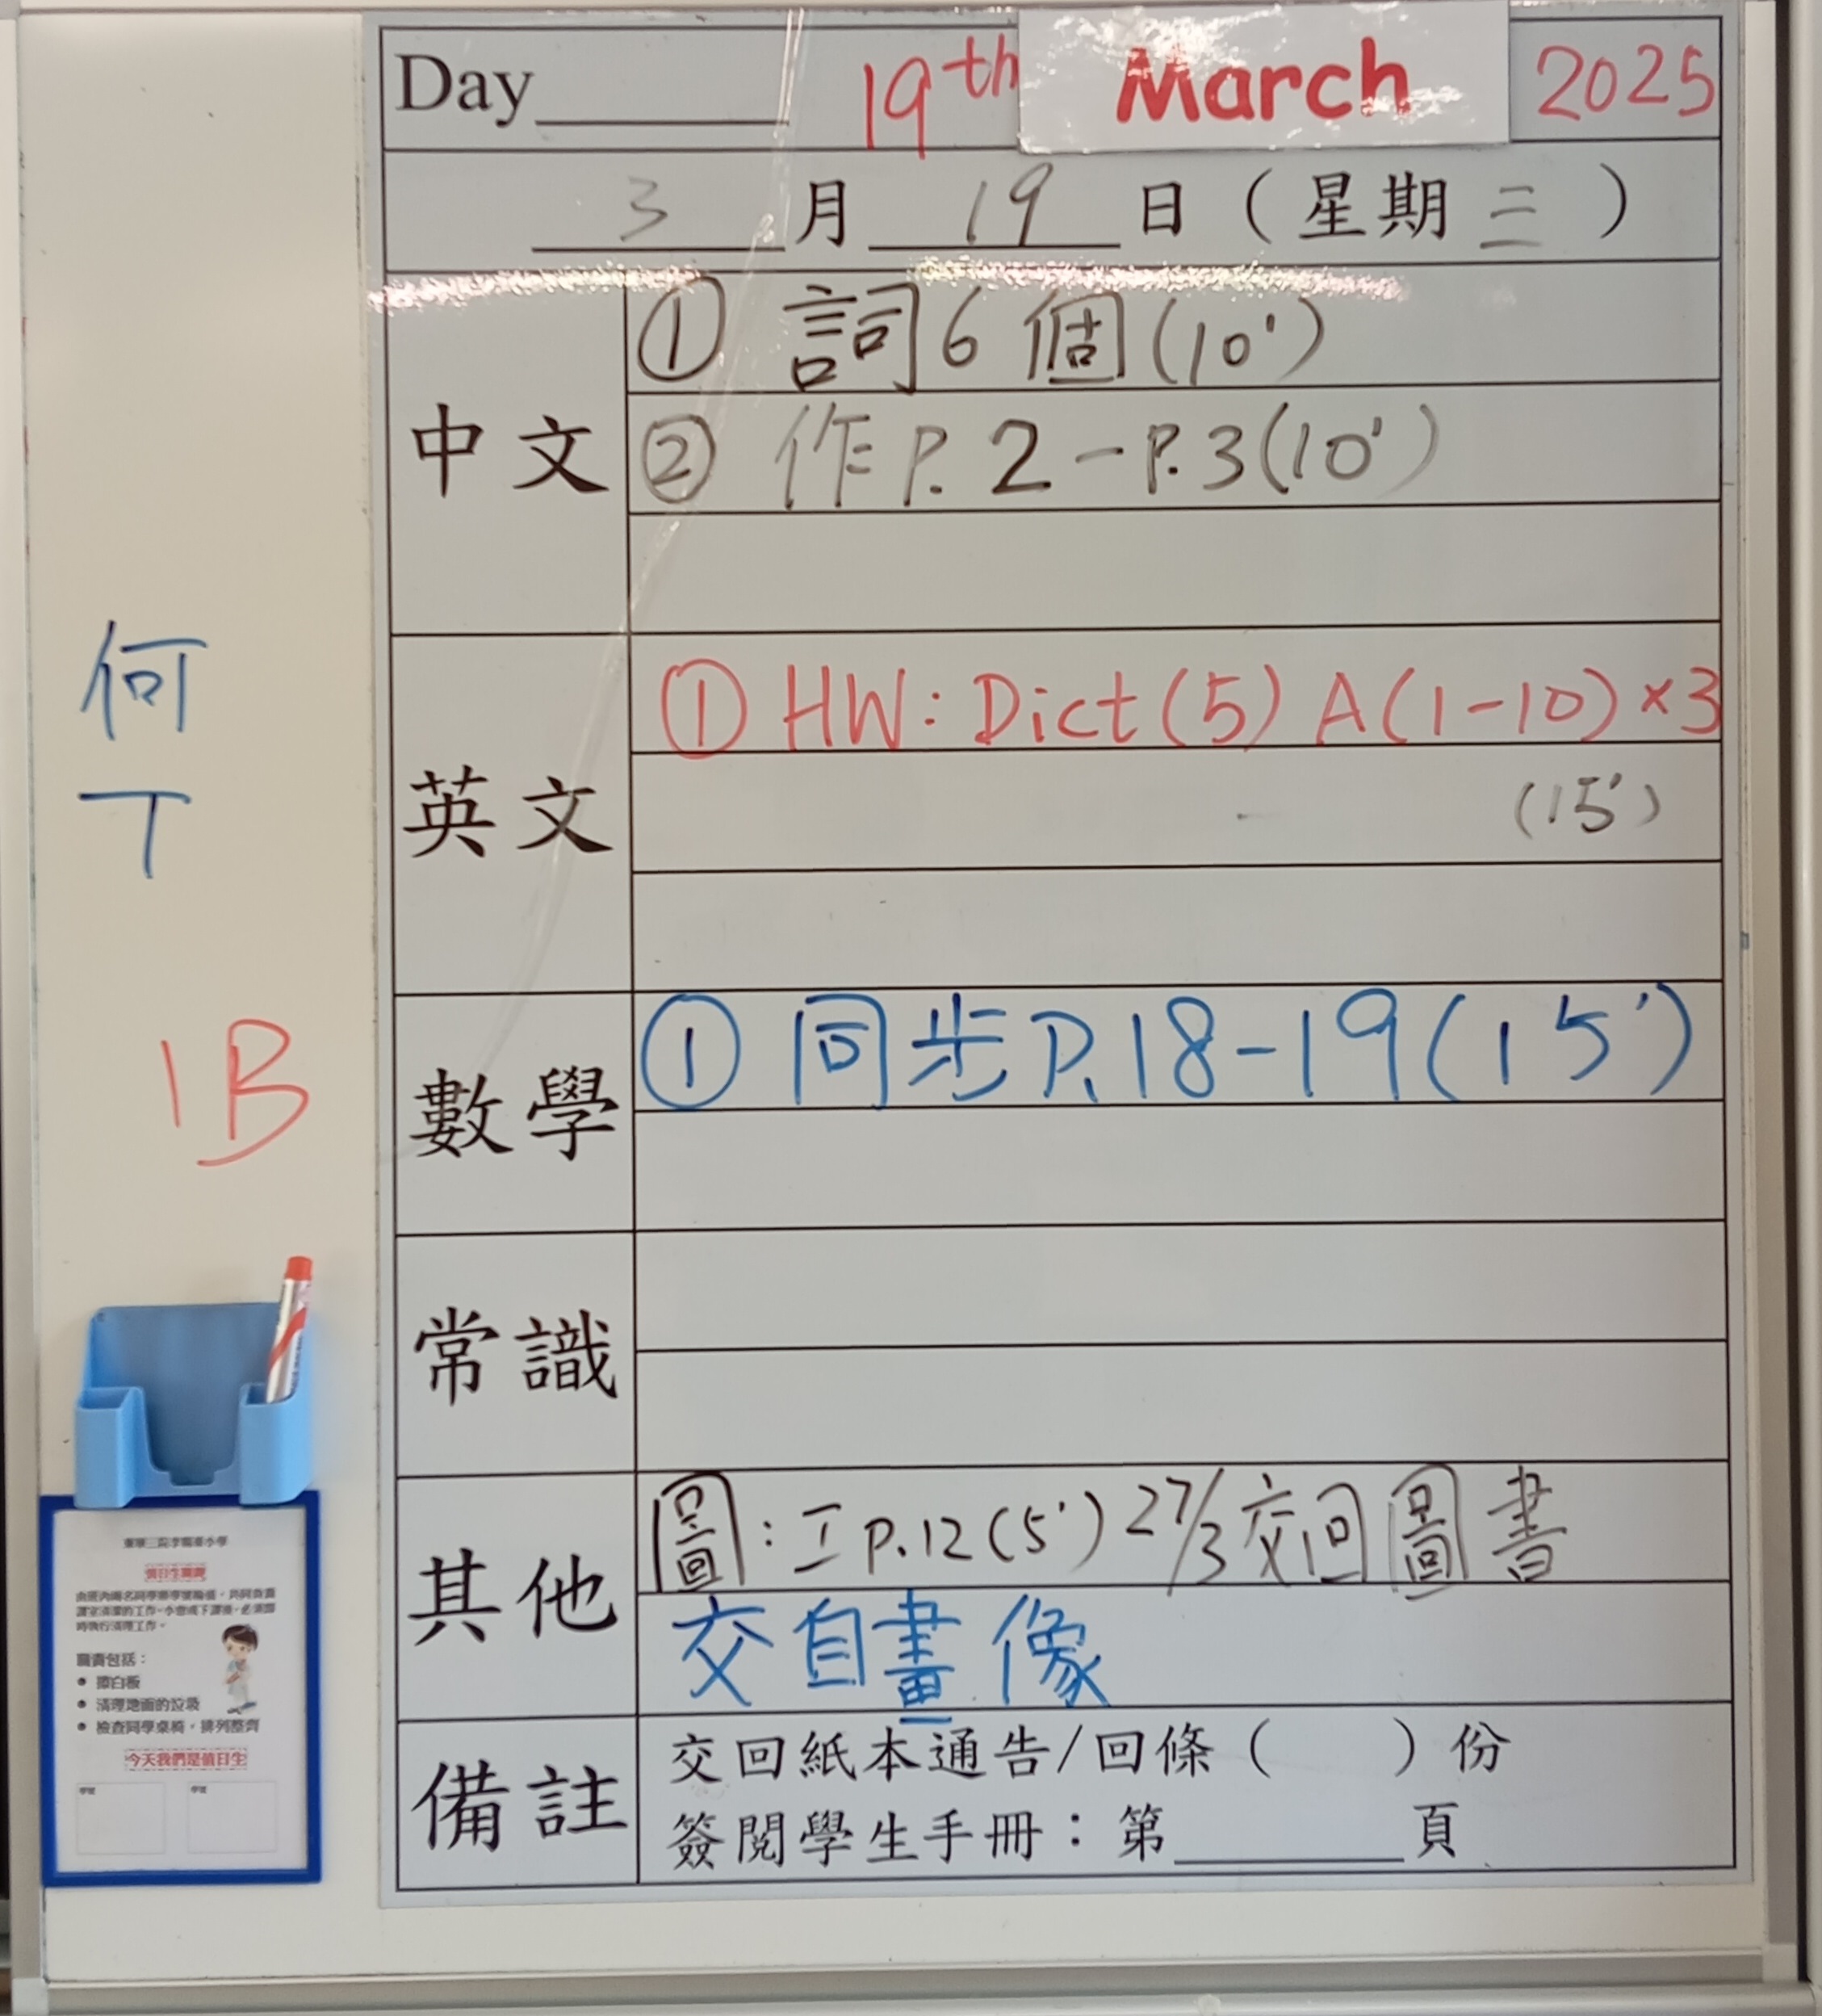 Day 19th March 2025
3 月 19 日（星期三）
中文
① 詞6個(10')
② 作P.2-P.3(10')
英文
① HW: Dict(5) A(1-10)×3
(15')
數學
① 同步P.18-19(15')
常識
其他
圖:工P.12(5') 27/3交回圖書
交自畫像
備註
交回紙本通告/回條（ ）份
簽閱學生手冊：第 頁
何
丁
1B
值日生職責
職責包括：
• 擦白板
• 清理地面的垃圾
• 檢查同學桌椅，排列整齊
今天我們是值日生
學號 學號